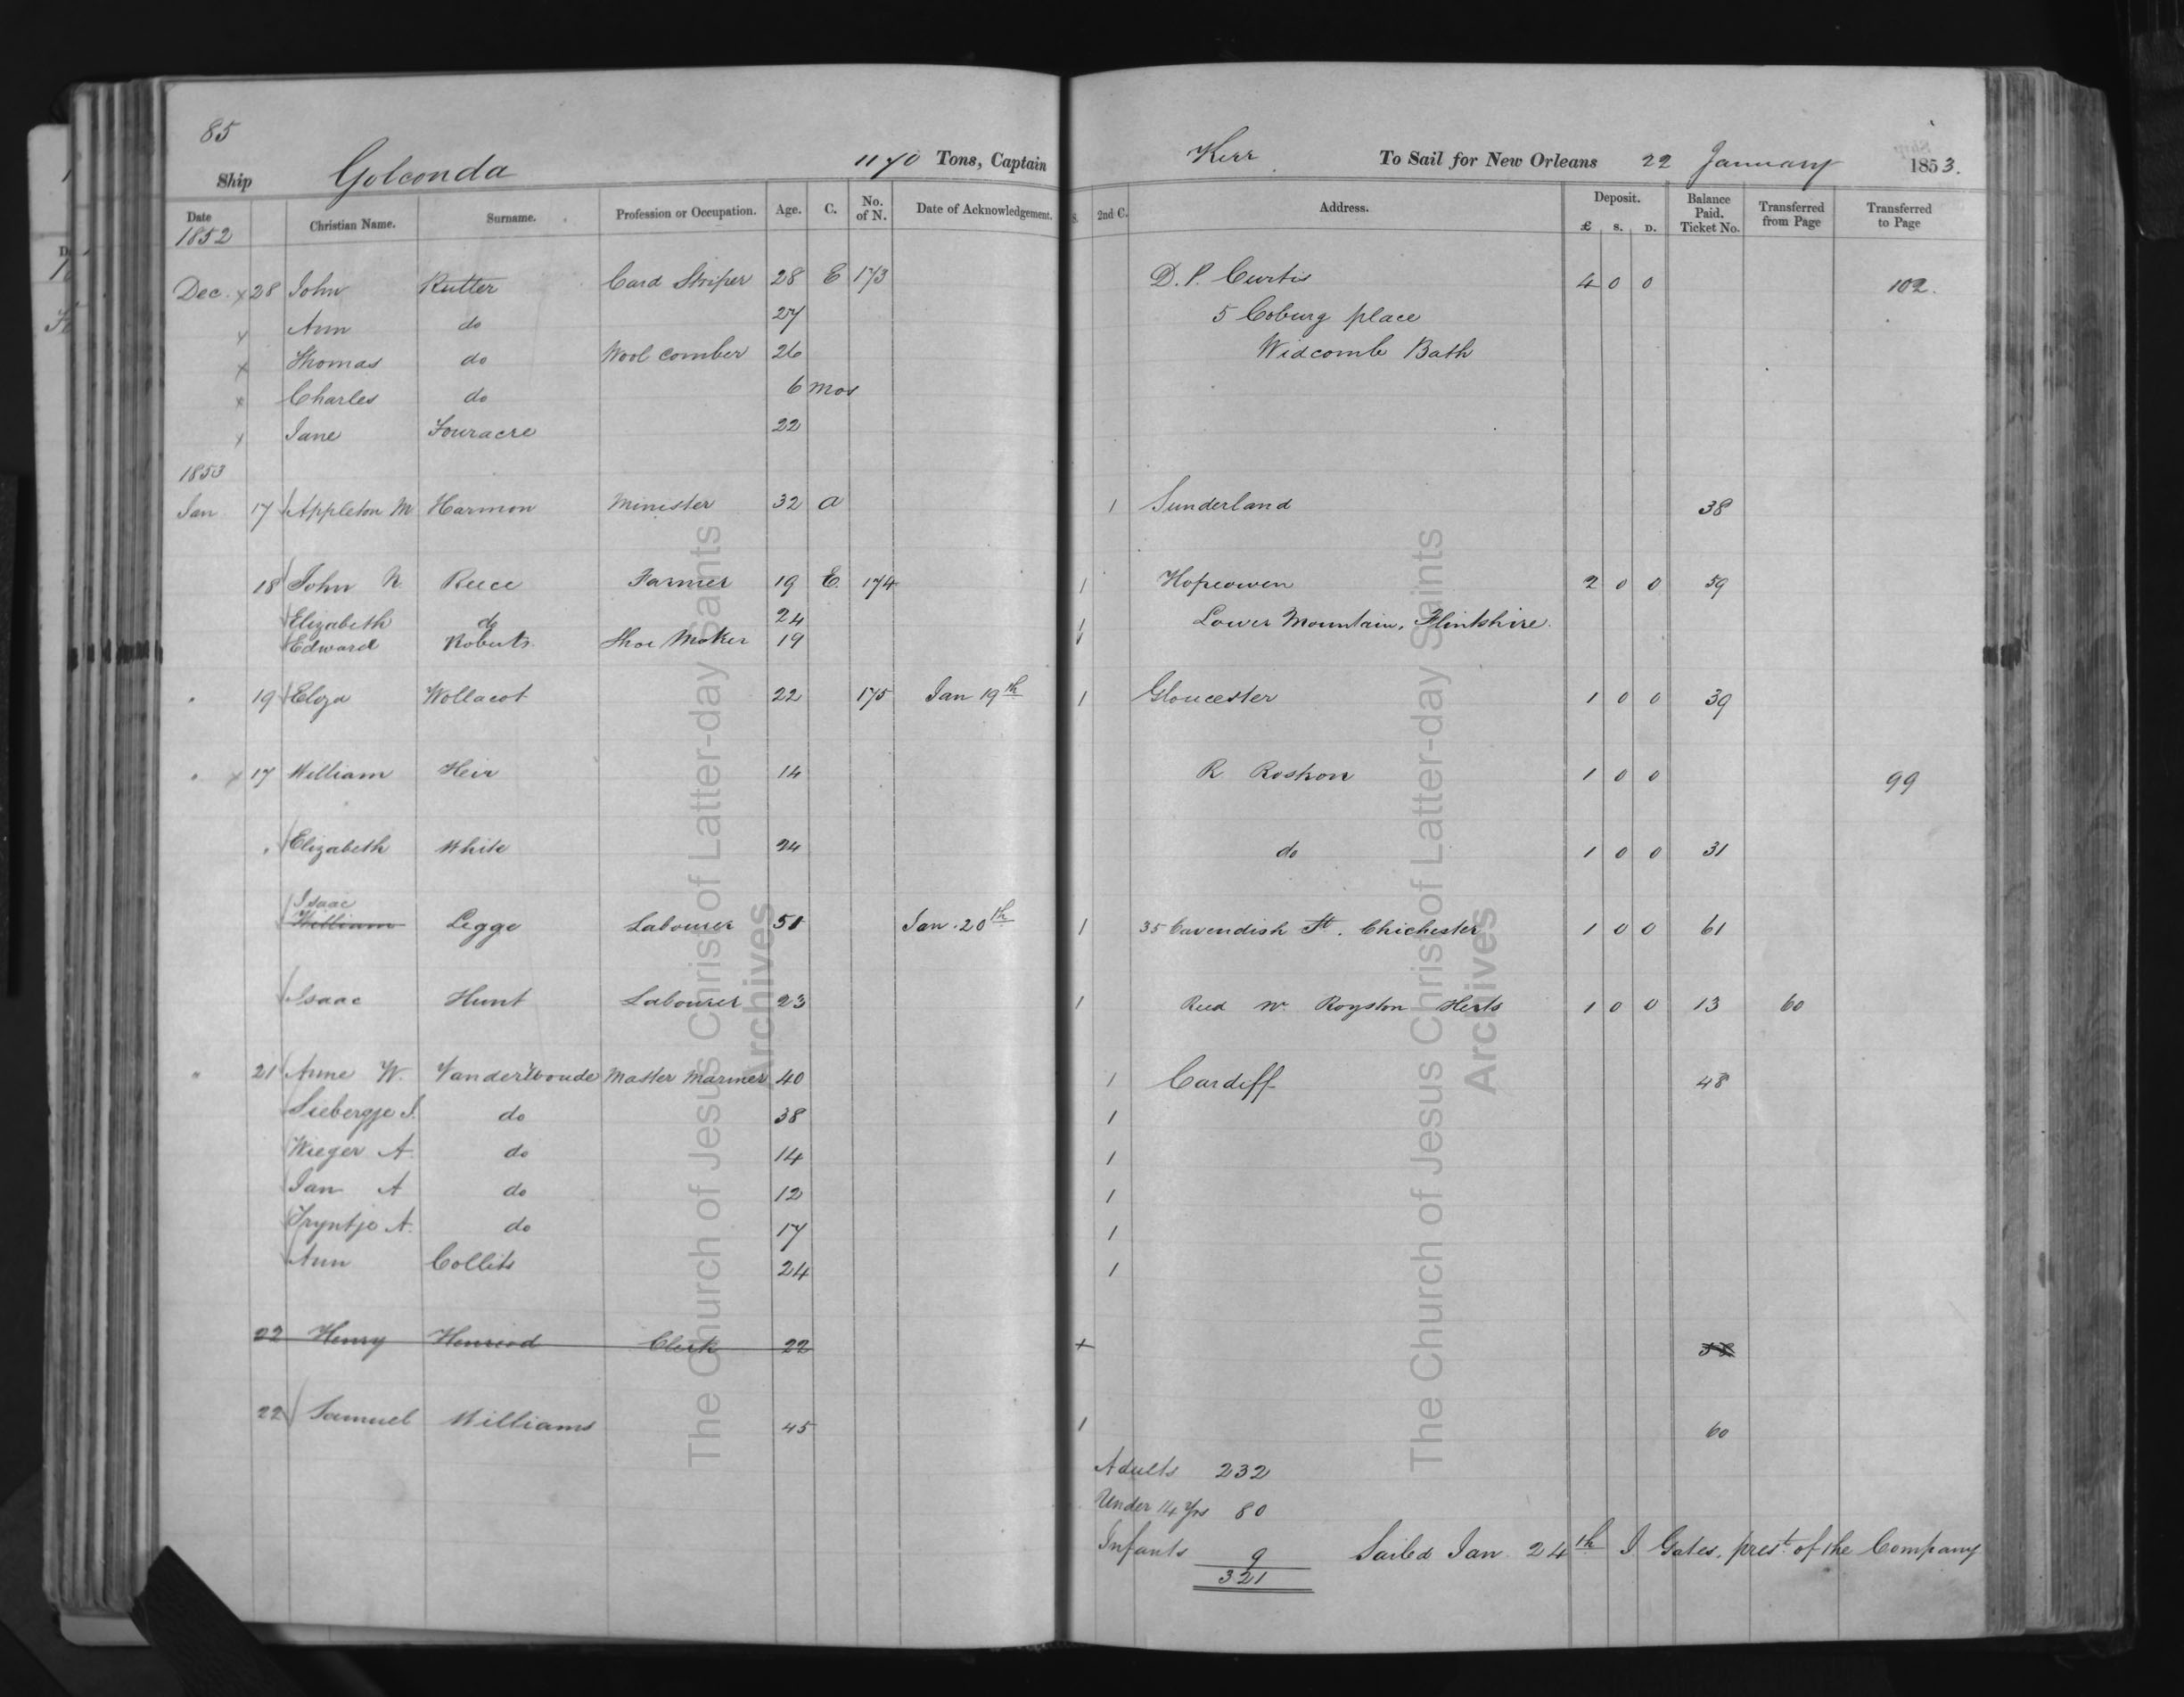 85
Ship Golconda 1170 Tons, Captain Kerr To Sail for New Orleans 22 January 1853.
Date Christian Name. Surname. Profession or Occupation. Age. C. No. of N. Date of Acknowledgement. S. 2nd C. Address. Deposit. £ S. D. Balance Paid. Ticket No. Transferred from Page Transferred to Page
1852
Dec. x 28 John Rutter Card Striper 28 E 173 D. P. Curtis 4 0 0 102.
x Ann do 27 5 Coburg place
x Thomas do Wool Comber 26 Widcomb Bath
x Charles do 6 mos
x Jane Fouracre 22
1853
Jan 17 Appleton M Harmon Minister 32 a 1 Sunderland 38
18 John N Reece Farmer 19 E. 174 1 Hopeowen 2 0 0 59
Elizabeth do 24 1 Lower Mountain, Flintshire.
Edward Roberts. Shoe Maker 19 1
" 19 Eliza Wollacot 22 175 Jan 19th 1 Gloucester 1 0 0 39
" x 17 William Heir 14 R Roskon 1 0 0 99
" Elizabeth White 24 do 1 0 0 31
Isaac
William Legge Labourer 51 Jan. 20th 1 35 Cavendish St. Chichester 1 0 0 61
Isaac Hunt Labourer 23 1 Reed Nr. Royston Herts 1 0 0 13 60
" 21 Anne W. VanderWoude Master Mariner 40 1 Cardiff 48
Siebergje S. do 38 1
Wieger A. do 14 1
Jan A do 12 1
Tryntje A. do 17 1
Ann Collits 24 1
22 Henry Henriod Clerk 22 +
22 Samuel Williams 45 1 60
Adults 232
Under 14 Yrs 80
Infants 9 Sailed Jan. 24th J Gates, prest of the Company
321
The Church of Jesus Christ of Latter-day Saints
Archives
The Church of Jesus Christ of Latter-day Saints
Archives